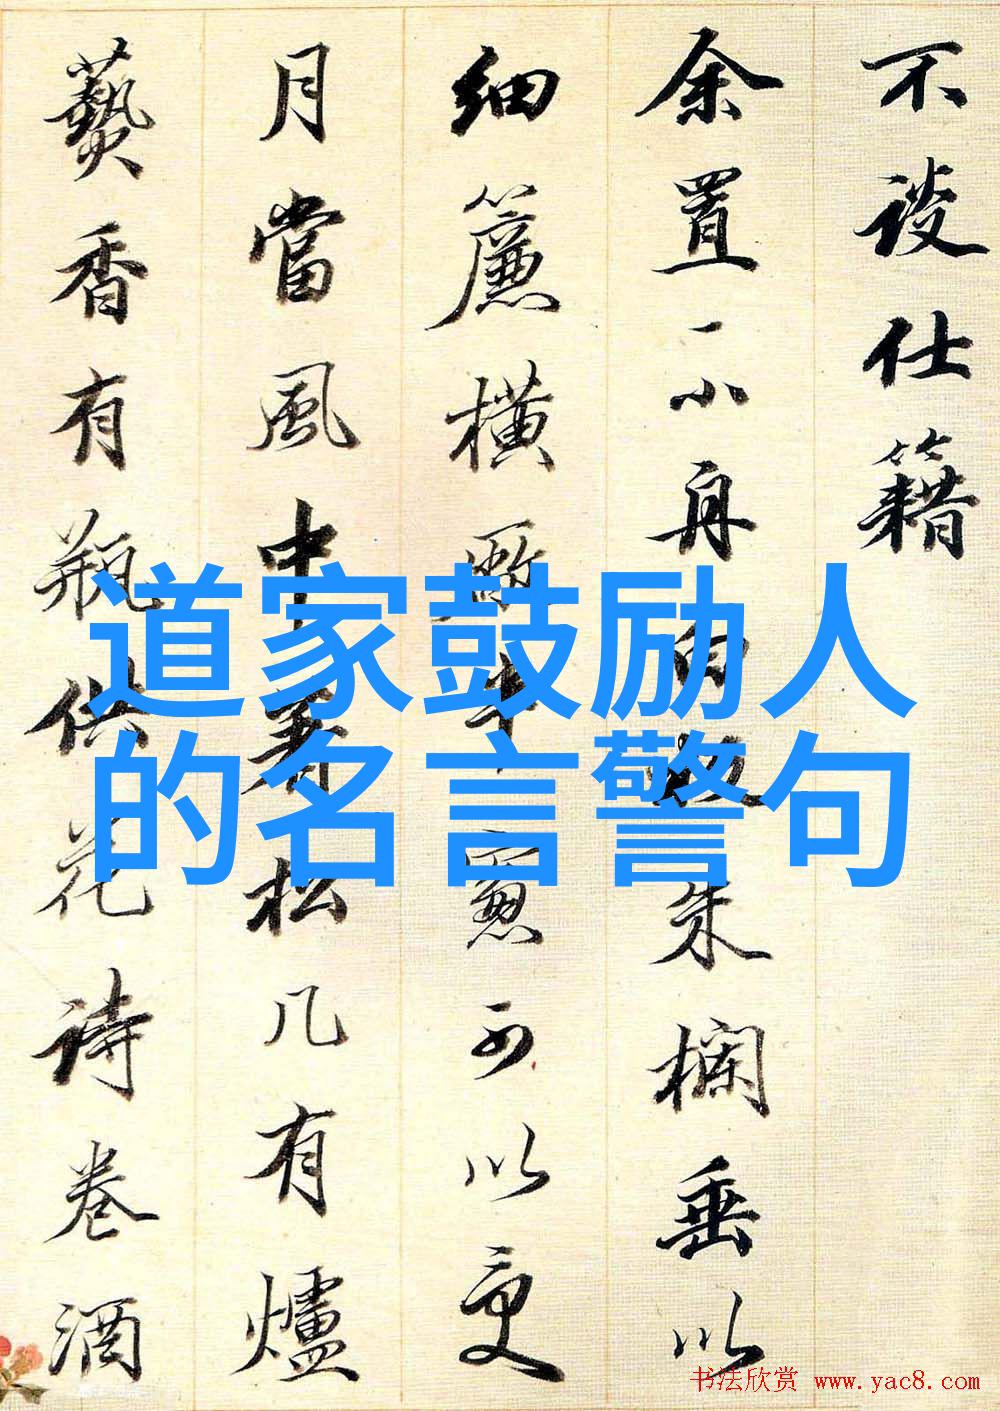 不談仕籍
余置一小舟白板朱欄垂以
細簾橫斲半窻可以受
月當風中著松几有爐
爇香有瓶供花詩卷酒
道家鼓励人
的名言警句
书法欣赏 www.yac8.com